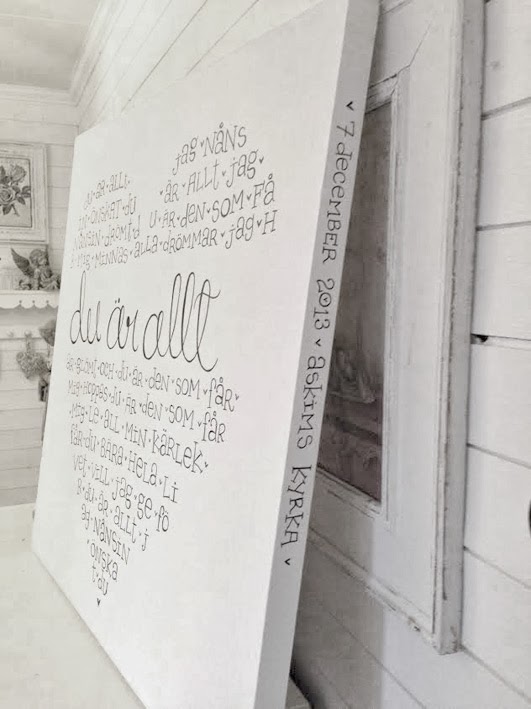 jag NÅNS
DU ÄR ALLT
ÄR ALLT jag
ÖNSKAT du
U ÄR DEN SOM FÅ
NÅNSIN DRÖMT d
R MIG MINNAS ALLA DRÖMMAR jag H
du är allt
ÄR GLÖMT OCH du ÄR DEN SOM FÅR
MIG HOPPAS du ÄR DEN SOM FÅR
MIG LE ALL MIN KÄRLEK
FÅR du BARA HELA LI
VET VILL jag GE FÖ
R du ÄR ALLT j
ag NÅNSIN
ÖNSKA
T du
7 december 2013 askims kyrka